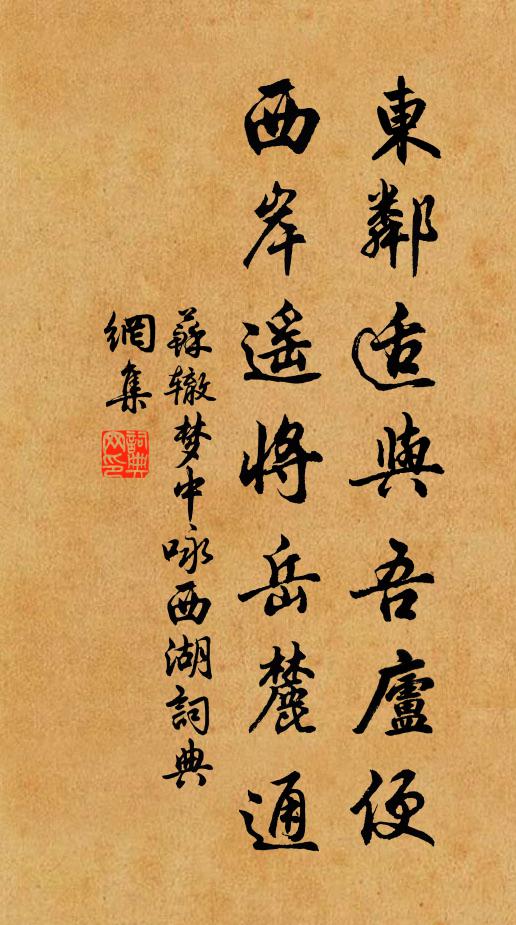 東鄰适與吾廬便
西岸遥將岳麓通
蘇辙梦中咏西湖詞典
網集
詞典
网印